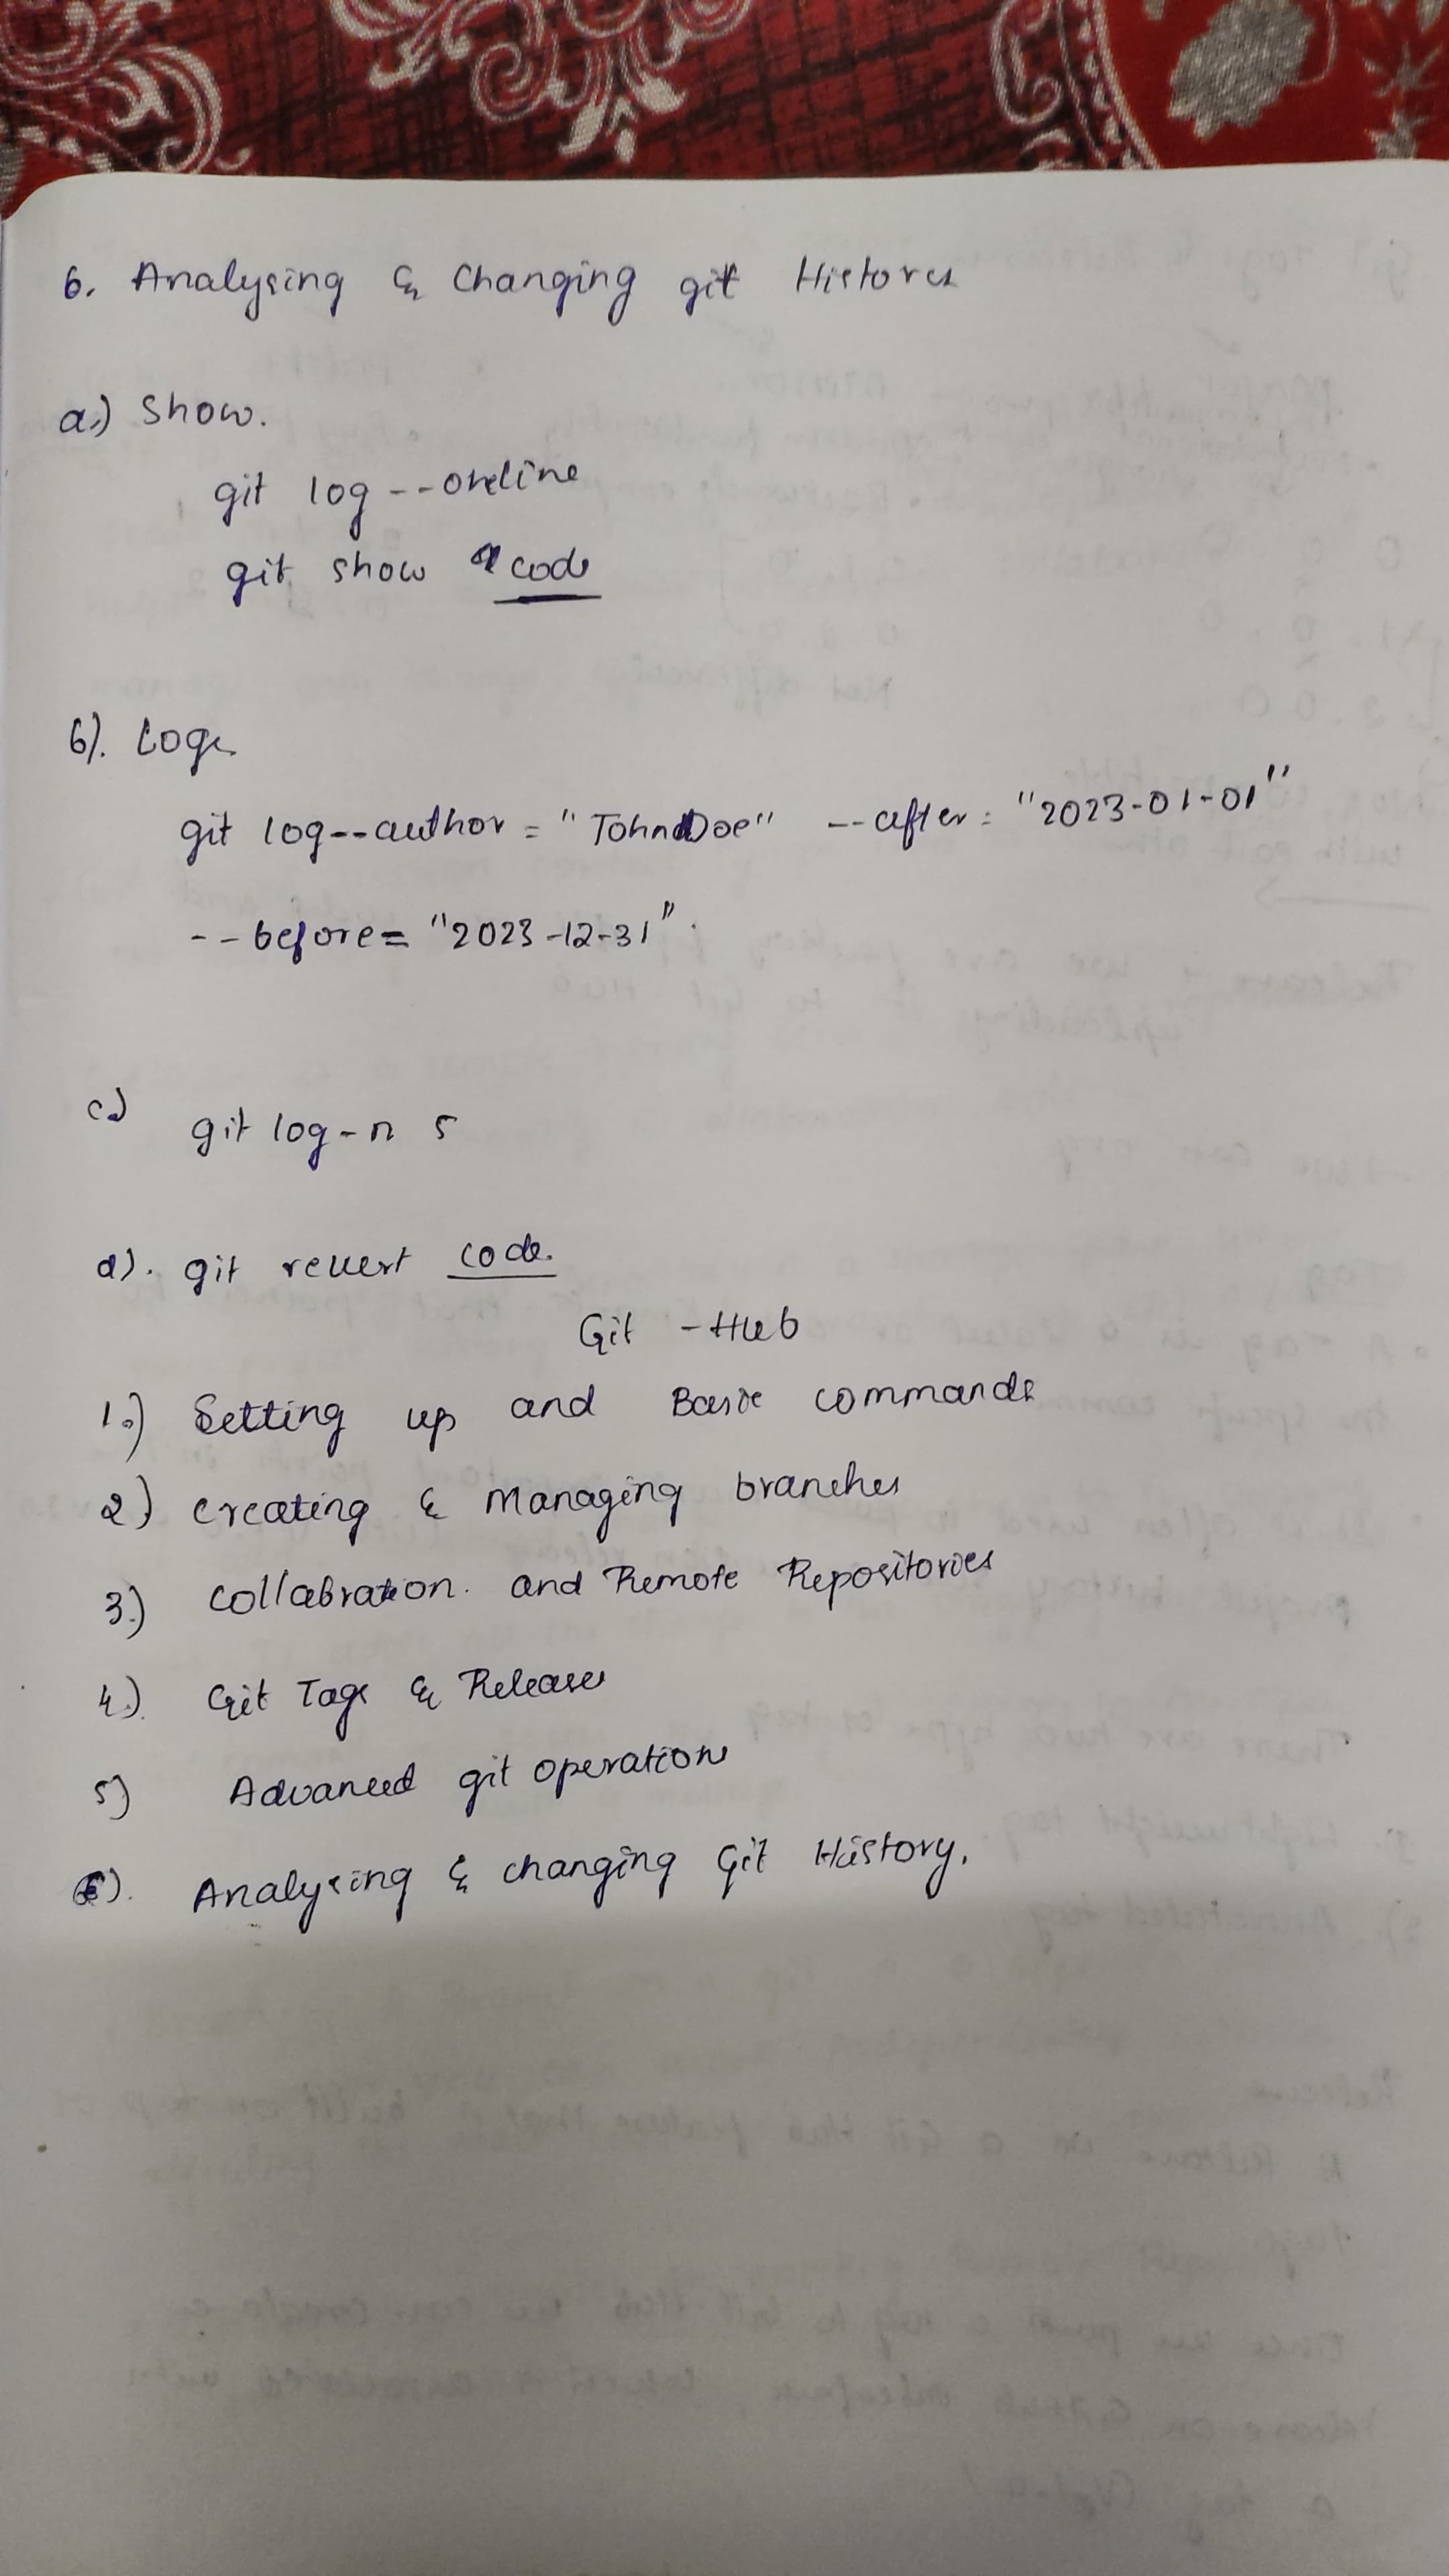 6. Analysing & Changing git History
a.) Show.
git log --oneline
git show code
b). Logs
git log--author = "JohnDoe" --after = "2023-01-01"
--before = "2023-12-31".
c.)
git log -n 5
d). git revert code.
Git - Hub
1.) Setting up and Basic commands
2.) Creating & Managing branches
3.) collabration. and Remote Repositories
4.) Git Tags & Releases
5) Advanced git operations
6). Analysing & changing Git History.